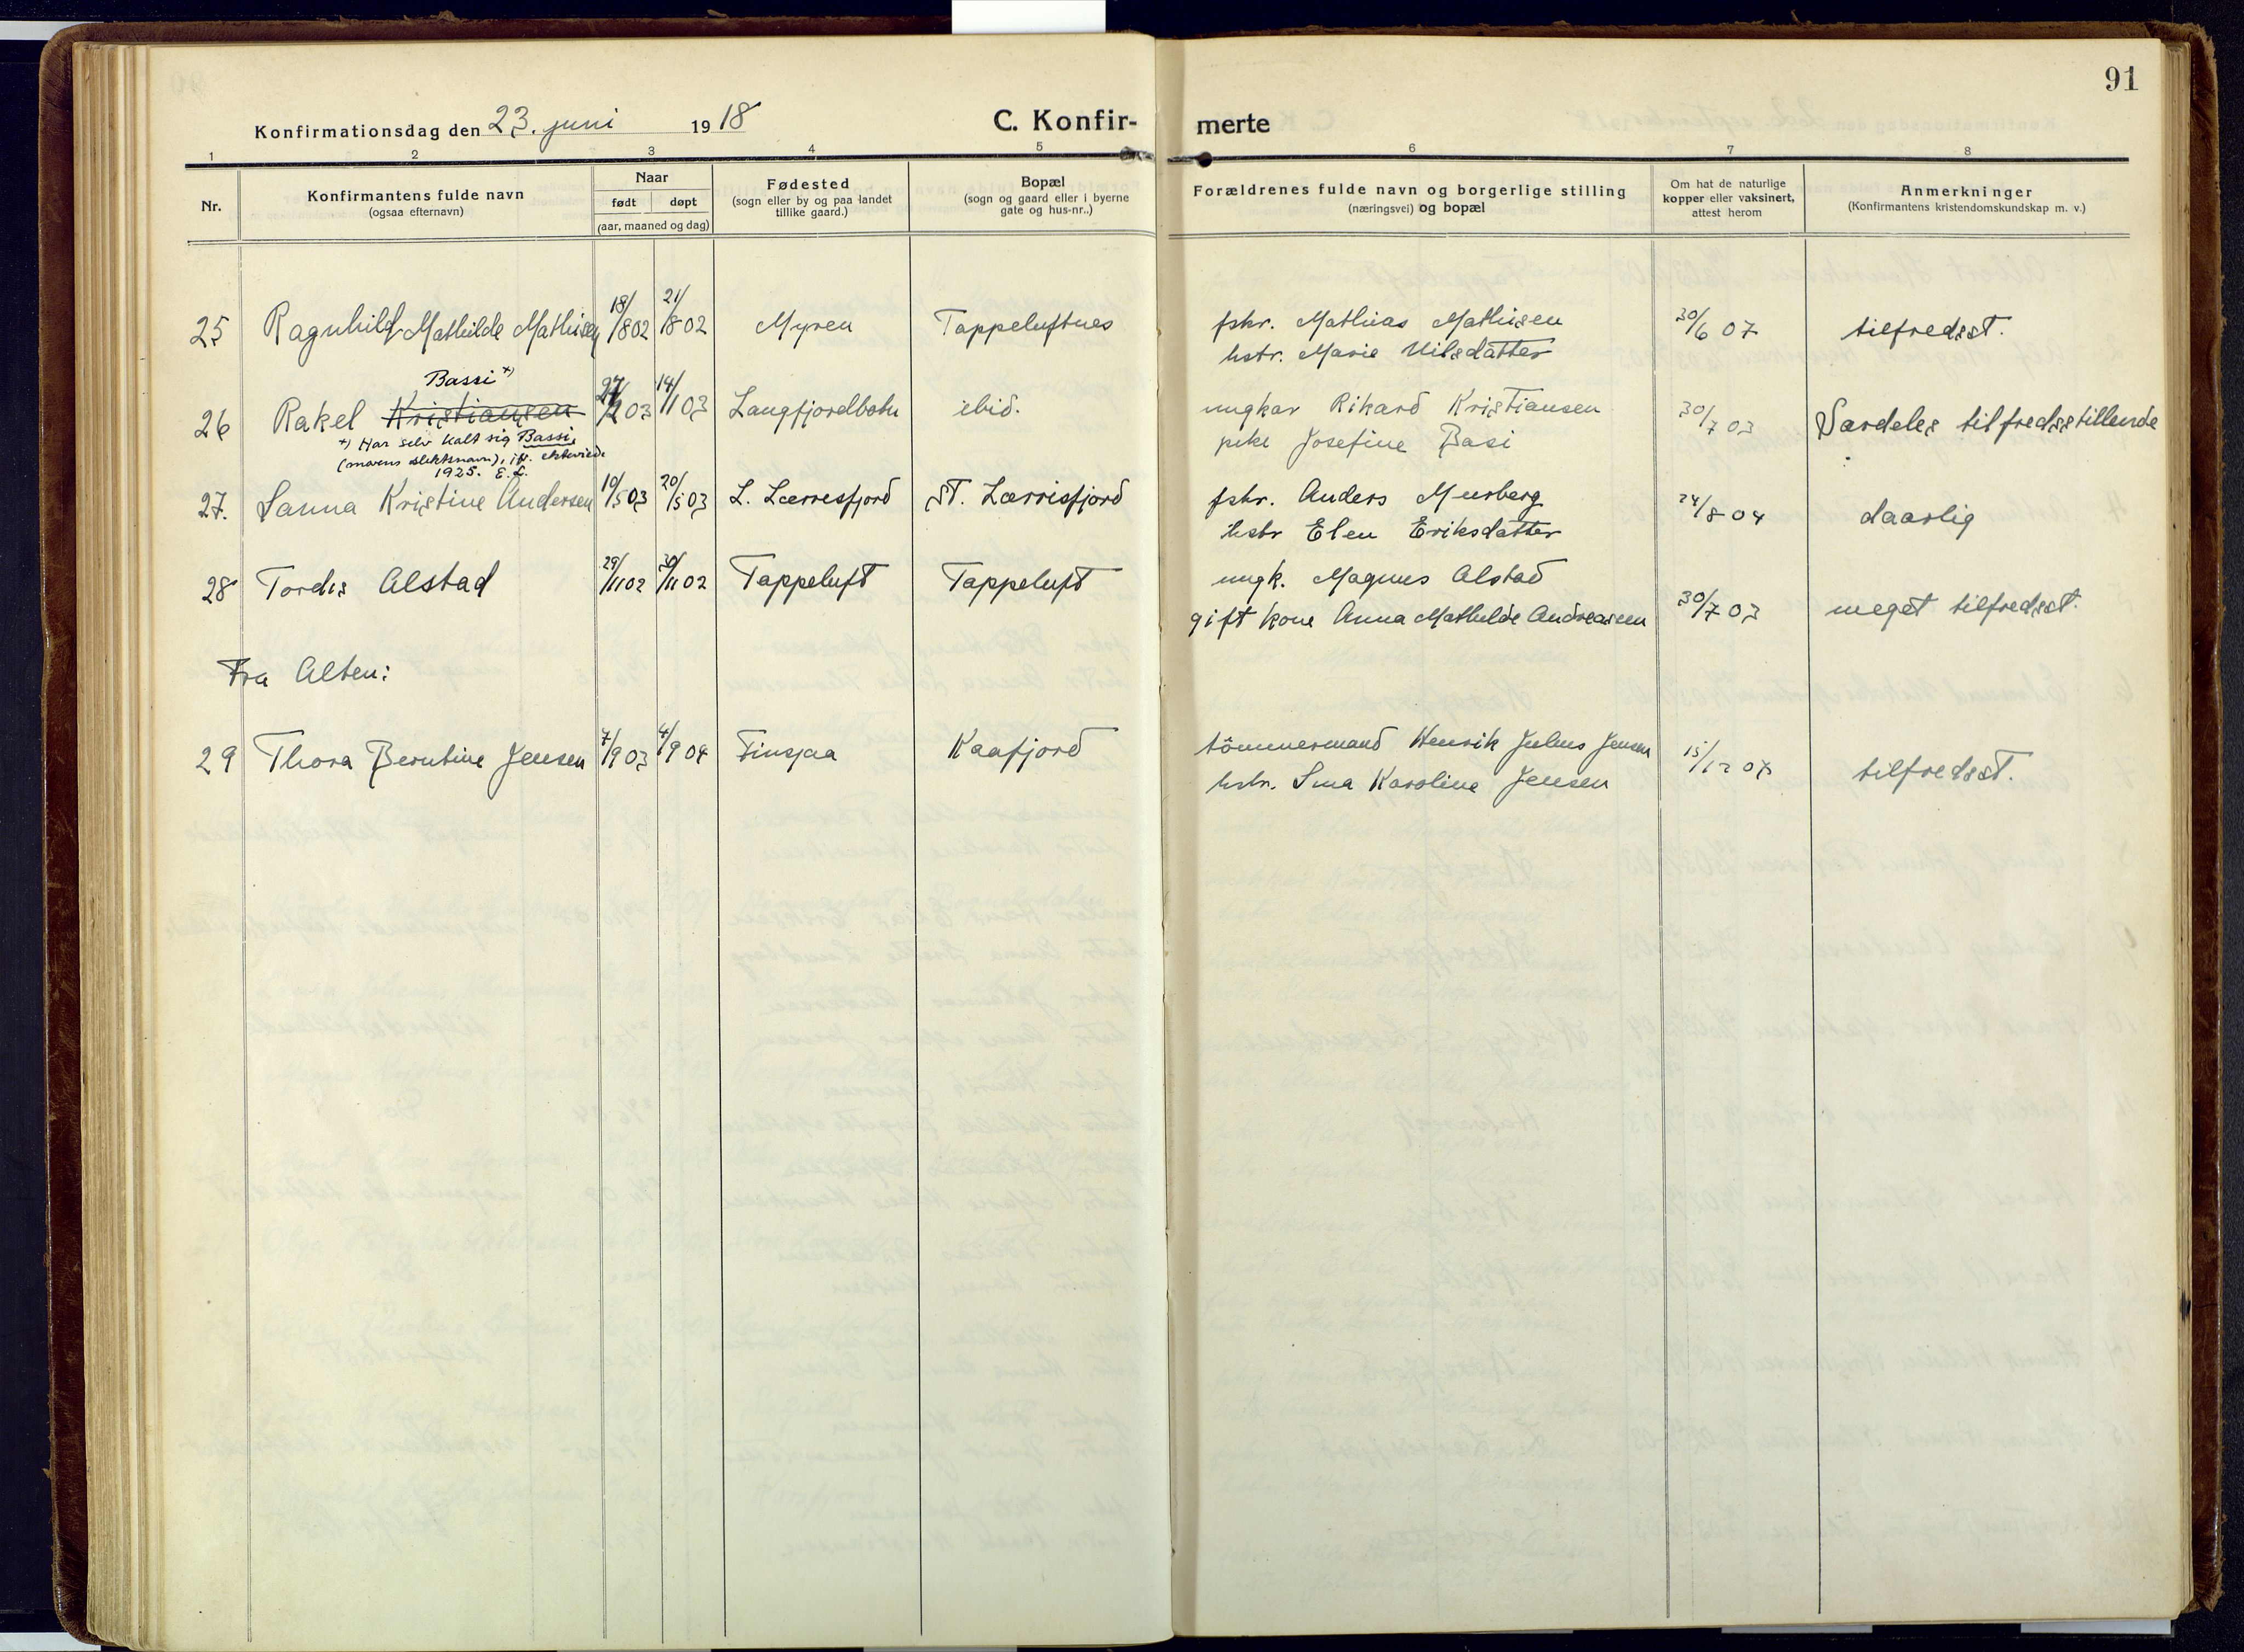 91
Konfirmationsdag den 23. juni 1918
C. Konfirmerte
1 2 3 4 5 6 7 8
Nr.
Konfirmantens fulde navn
(ogsaa efternavn)
Naar
født døpt
(aar, maaned og dag)
Fødested
(sogn eller by og paa landet
tillike gaard.)
Bopæl
(sogn og gaard eller i byerne
gate og hus-nr..)
Forældrenes fulde navn og borgerlige stilling
(næringsvei) og bopæl
Om hat de naturlige
kopper eller vaksinert,
attest herom
Anmerkninger
(Konfirmantens kristendomskundskap m. v.)
25 Ragnhild Mathilde Mathisen 18/8 02 21/8 02 Myren Tappeluftnes fskr. Mathias Mathisen 30/6 07 tilfredsst.
hstr. Marie Nilsdatter
Bassi *)
26 Rakel Kristiansen 03 14/11 03 Langfjordbotn ibid. ungkar Rikard Kristiansen 30/7 03 Særdeles tilfredsstillende
pike Josefine Basi
*) Har selv kalt sig Bassi,
(morens slektsnavn), if. ekteviede
1925. E.L.
27. Sanna Kristine Andersen 10/5 03 20/5 03 L. Lærresfjord St. Lærrisfjord fskr. Anders Mursberg 24/8 04 daarlig
hstr Elen Eriksdatter
28 Tordis Alstad 29/11 02 30/11 02 Tappeluft Tappeluft ungk. Magnus Alstad
gift kone Anna Mathilde Andreasen 30/7 03 meget tilfredsst.
Fra Alten:
29 Thora Berntine Jensen 7/9 03 4/9 04 Finsjaa Kaafjord tömmermand Henrik Julius Jensen 15/12 07 tilfredsst.
hstr. Sina Karoline Jensen